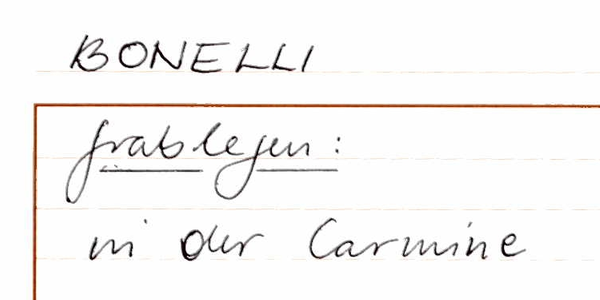 BONELLI
Grablegen:
in der Carmine